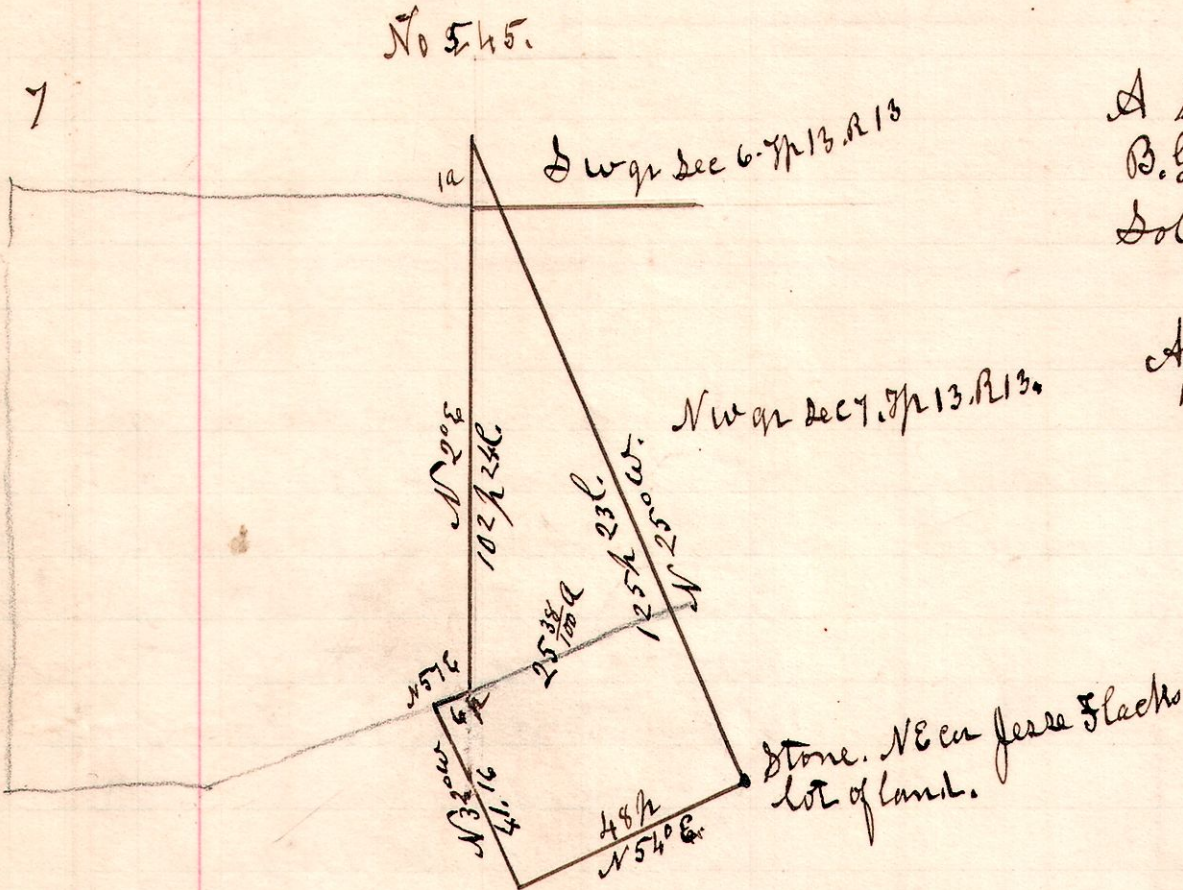 No 545.
7
A
B.
Sol
1a
S w qr Sec 6. Tp 13. R 13
A
N w qr Sec 7. Tp 13. R 13.
N 2° E
102 p 24 l.
125 p 23 l.
N 25° W.
25 38/100 a
N 57 E
6 p
N 32° W
41.16
48 p
N 54° E.
Stone. NE cor Jesse Flacks
lot of land.